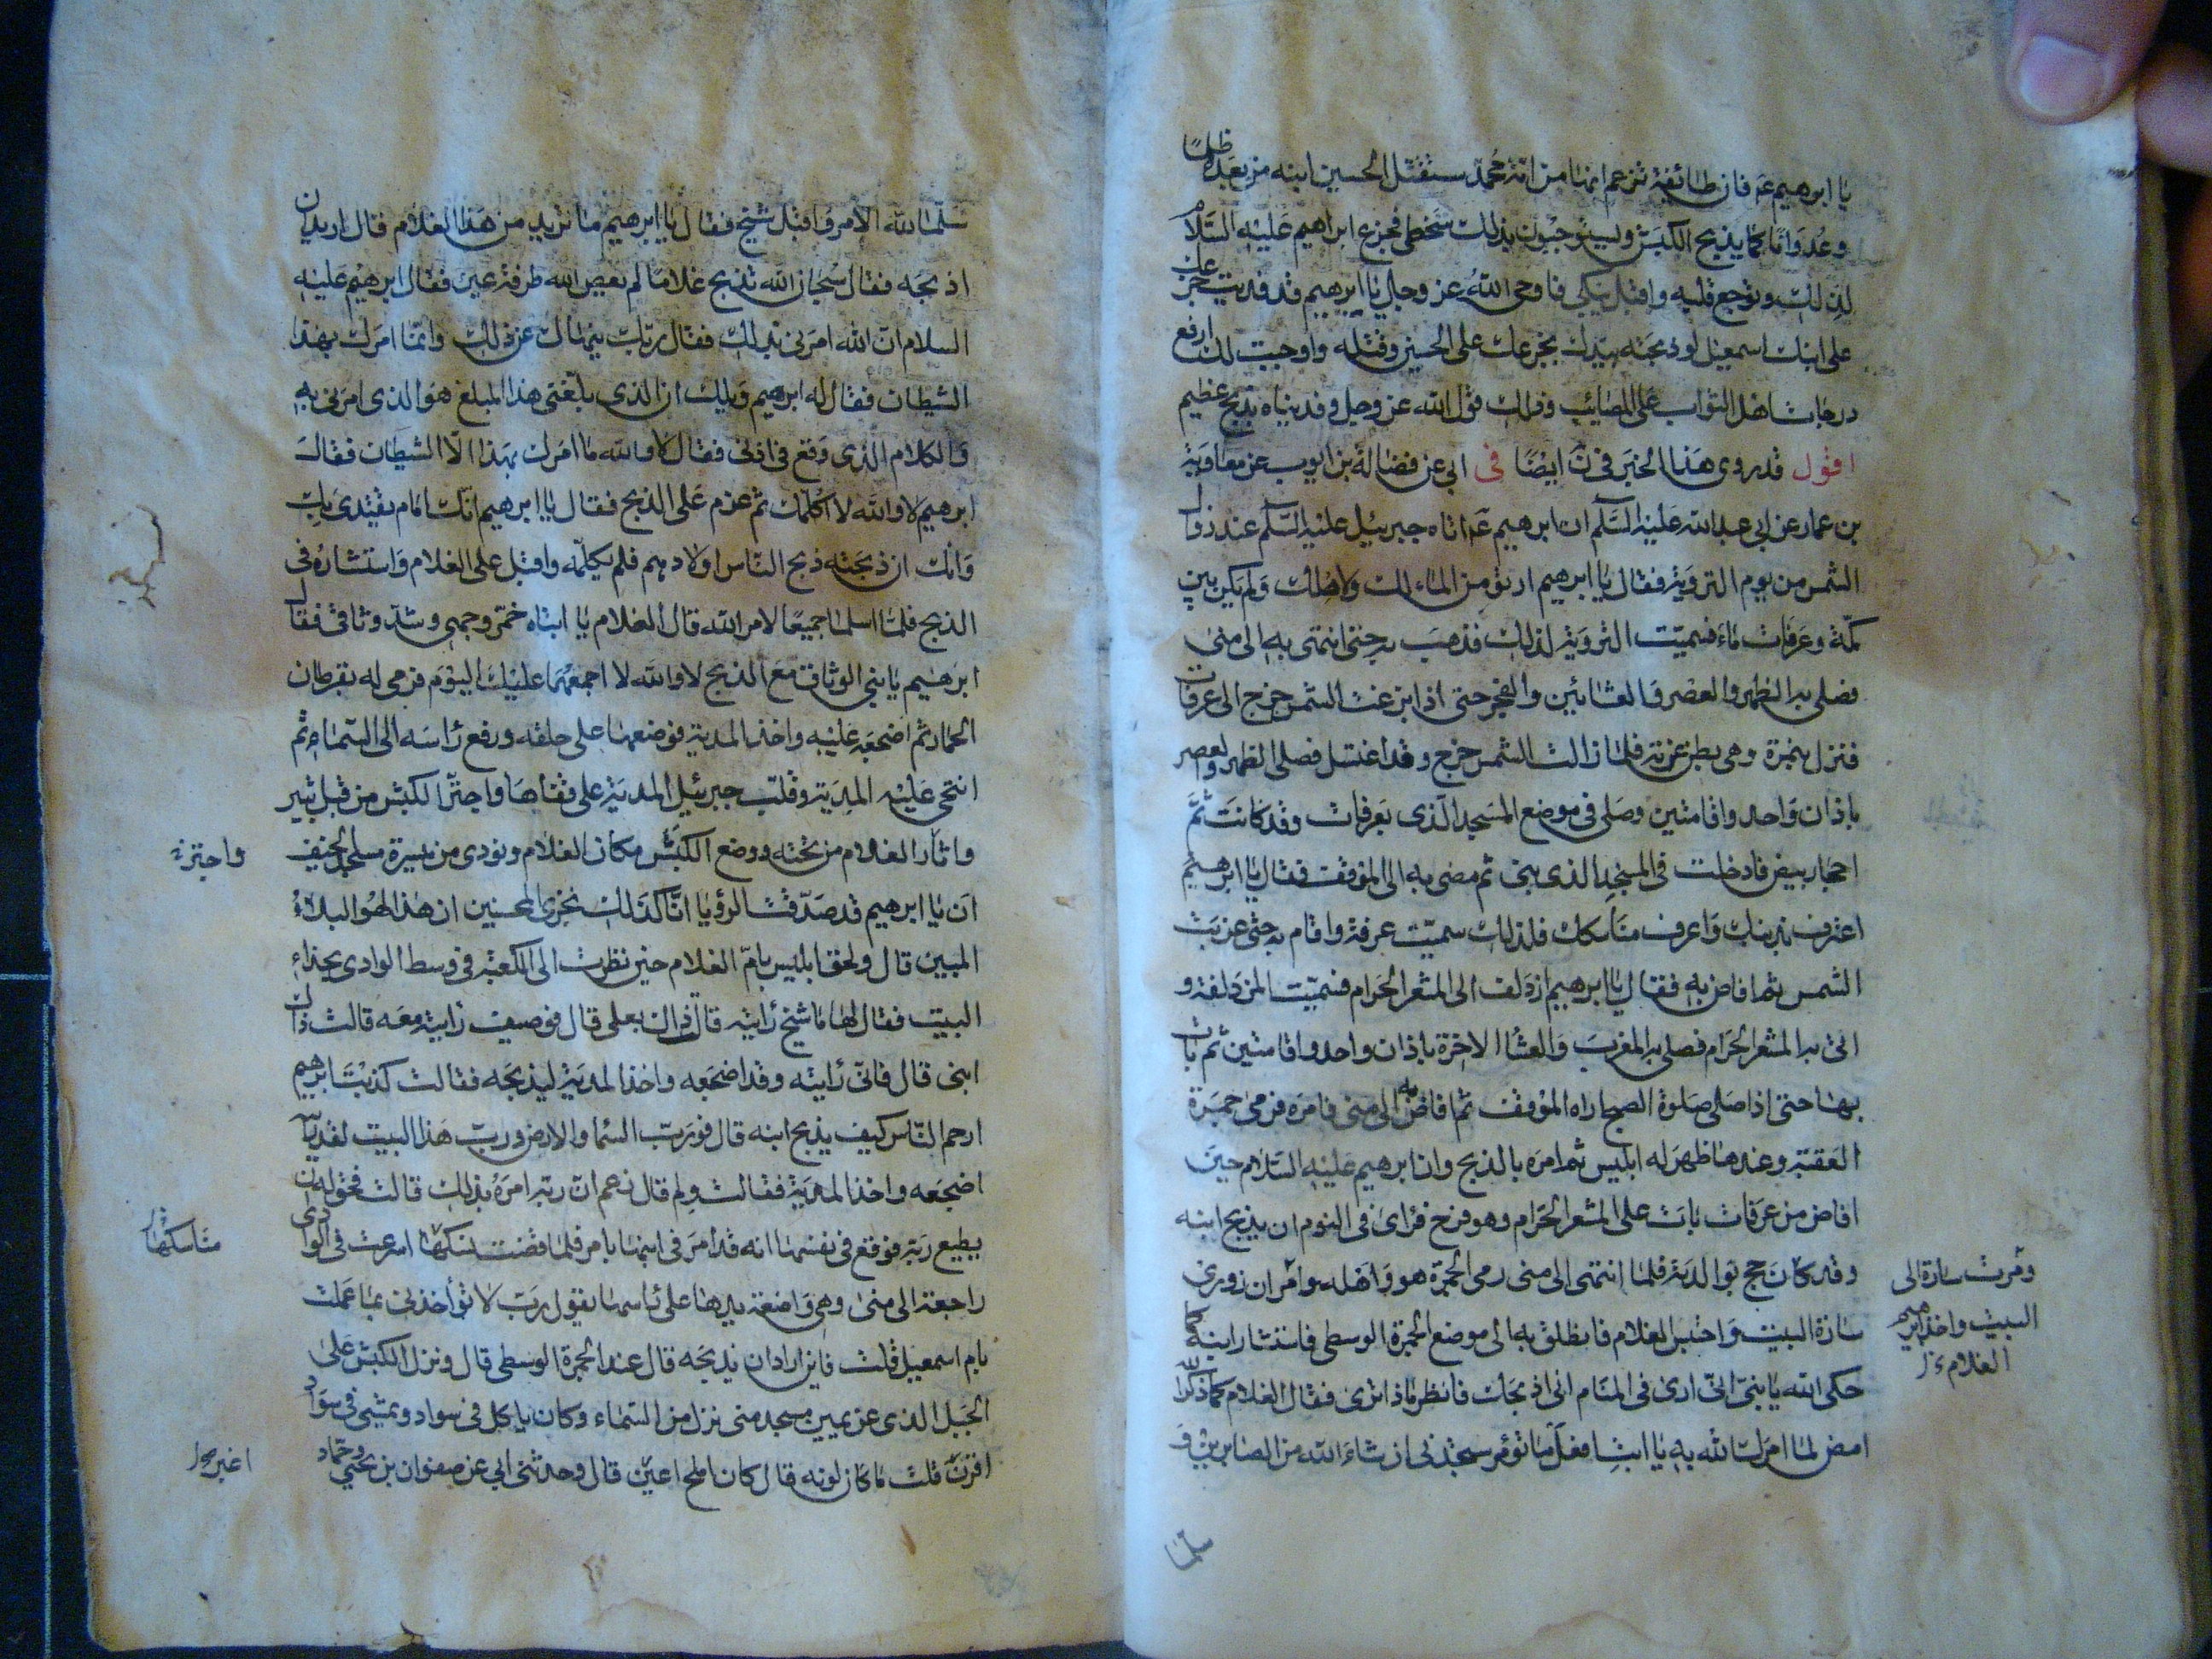 يا ابرهيم عم فان طائفة تزعم انها من امة محمد ستقتل الحسين ابنه من بعده ظلما
وعدوانا كما يذبح الكبش ويستوجبون بذلك سخطى فجزع ابراهيم عليه السلام
لذلك وتوجع قلبه واقبل يبكي فاوحى الله عز وجل يا ابرهيم قد فديت جزعك
على ابنك اسمعيل لو ذبحته بيدك بجزعك على الحسين وقتله واوجبت لك ارفع
درجات اهل الثواب على المصائب وذلك قول الله عز وجل وفديناه بذبح عظيم
اقول قد روى هذا الخبر في ن ايضا فى ابي عن فضالة بن ايوب عن معاوية
بن عمار عن ابي عبد الله عليه السلم ان ابرهيم عم اتاه جبرئيل عليه السلم عند زوال
الشمس من يوم التروية فقال يا ابرهيم ارتو من الماء لك ولاهلك ولم يكن بين
مكة وعرفات ماء فسميت التروية لذلك فذهب به حتى انتهى به الى منى
فصلى به الظهر والعصر والعشائين والفجر حتى اذا بزغت الشمس خرج الى عرفات
فنزل بنمرة وهي بطن عرنة فلما زالت الشمس خرج وقد اغتسل فصلى الظهر والعصر
باذان واحد واقامتين وصلى في موضع المسجد الذى بعرفات وقد كانت ثم
احجار بيض فادخلت في المسجد الذى بنى ثم مضى به الى الموقف فقال يا ابرهيم
اعترف بذنبك واعرف مناسكك فلذلك سميت عرفة واقام به حتى غربت
الشمس ثم افاض به فقال يا ابرهيم ازدلف الى المشعر الحرام فسميت المزدلفة و
اتى به المشعر الحرام فصلى به المغرب والعشا الاخرة باذان واحد واقامتين ثم بات
بها حتى اذا صلى صلوة الصبح اراه الموقف ثم افاض به الى منى فامره فرمى جمرة
العقبة وعندها ظهر له ابليس ثم امره بالذبح وان ابرهيم عليه السلام حين
افاض من عرفات بات على المشعر الحرام وهو فزح فراى في النوم ان يذبح ابنه
وقد كان حج بوالدته فلما انتهى الى منى رمى الجمرة هو واهله وامر ان زورى
سارة البيت واحتبس الغلام فانطلق به الى موضع الجمرة الوسطى فاستشار ابنه كما
حكى الله يا بني انى ارى في المنام انى اذبحك فانظر ماذا ترى فقال الغلام كما ذكر الله
امض لما امرك الله به يا ابت افعل ما تؤمر ستجدنى ان شاء الله من الصابرين و
سلما
ومرت سارة الى
البيت واخذ ابرهيم
الغلام
سلما لله الامر واقبل شيخ فقال يا ابرهيم ما تريد من هذا الغلام قال اريد ان
اذبحه فقال سبحان الله تذبح غلاما لم يعص الله طرفة عين فقال ابرهيم عليه
السلام ان الله امرنى بذلك فقال ربك ينهاك عن ذلك وانما امرك بهذا
الشيطان فقال له ابرهيم ويلك ان الذى بلغنى هذا المبلغ هو الذى امرنى به
والكلام الذى وقع في اذنى فقال لا والله ما امرك بهذا الا الشيطان فقال
ابرهيم لا والله لا اكلمك ثم عزم على الذبح فقال يا ابرهيم انك امام يقتدى بك
وانك ان ذبحته ذبح الناس اولادهم فلم يكلمه واقبل على الغلام واستشاره في
الذبح فلما اسلما جميعا لامر الله قال الغلام يا ابتاه خمر وجهي وشد وثاقى فقال
ابرهيم يا بني الوثاق مع الذبح لا والله لا اجمعهما عليك اليوم فرمى له بقرطان
الحمار ثم اضجعه عليه واخذ المدية فوضعها على حلقه ورفع رأسه الى السماء ثم
انتحى عليه المدية وقلب جبرئيل المدية على قفاها واجتر الكبش من قبل ثبير
واثار الغلام من تحته ووضع الكبش مكان الغلام ونودى من ميسرة مسجد الخيف
ان يا ابرهيم قد صدقت الرؤيا انا كذلك نجزى المحسنين ان هذا لهو البلاء
المبين قال ولحق ابليس بام الغلام حين نظرت الى الكعبة في وسط الوادى بحذاء
البيت فقال لها ما شيخ رايته قالت ذاك بعلى قال فوصيف رايته معه قالت ذاك
ابنى قال فانى رأيته وقد اضجعه واخذ المدية ليذبحه فقالت كذبت ابرهيم
ارحم الناس كيف يذبح ابنه قال فورب السما والارض ورب هذا البيت لقد رايته
اضجعه واخذ المدية فقالت ولم قال زعم ان ربه امره بذلك قالت فحق له ان
يطيع ربه فوقع في نفسها انه قد امر في ابنها بامر فلما قضت نسكها اسرعت في الوادى
راجعة الى منى وهي واضعة يدها على راسها يقول رب لا تؤاخذنى بما عملت
بام اسمعيل قلت فاين اراد ان يذبحه قال عند الجمرة الوسطى قال ونزل الكبش على
الجبل الذى عن يمين مسجد منى نزل من السماء وكان ياكل في سواد ويمشي في سواد
اقرن قلت ما كان لونه قال كان املح اعين قال وحدثنى ابي عن صفوان بن يحيى وحماد
واجتره
مناسكها
اغبر